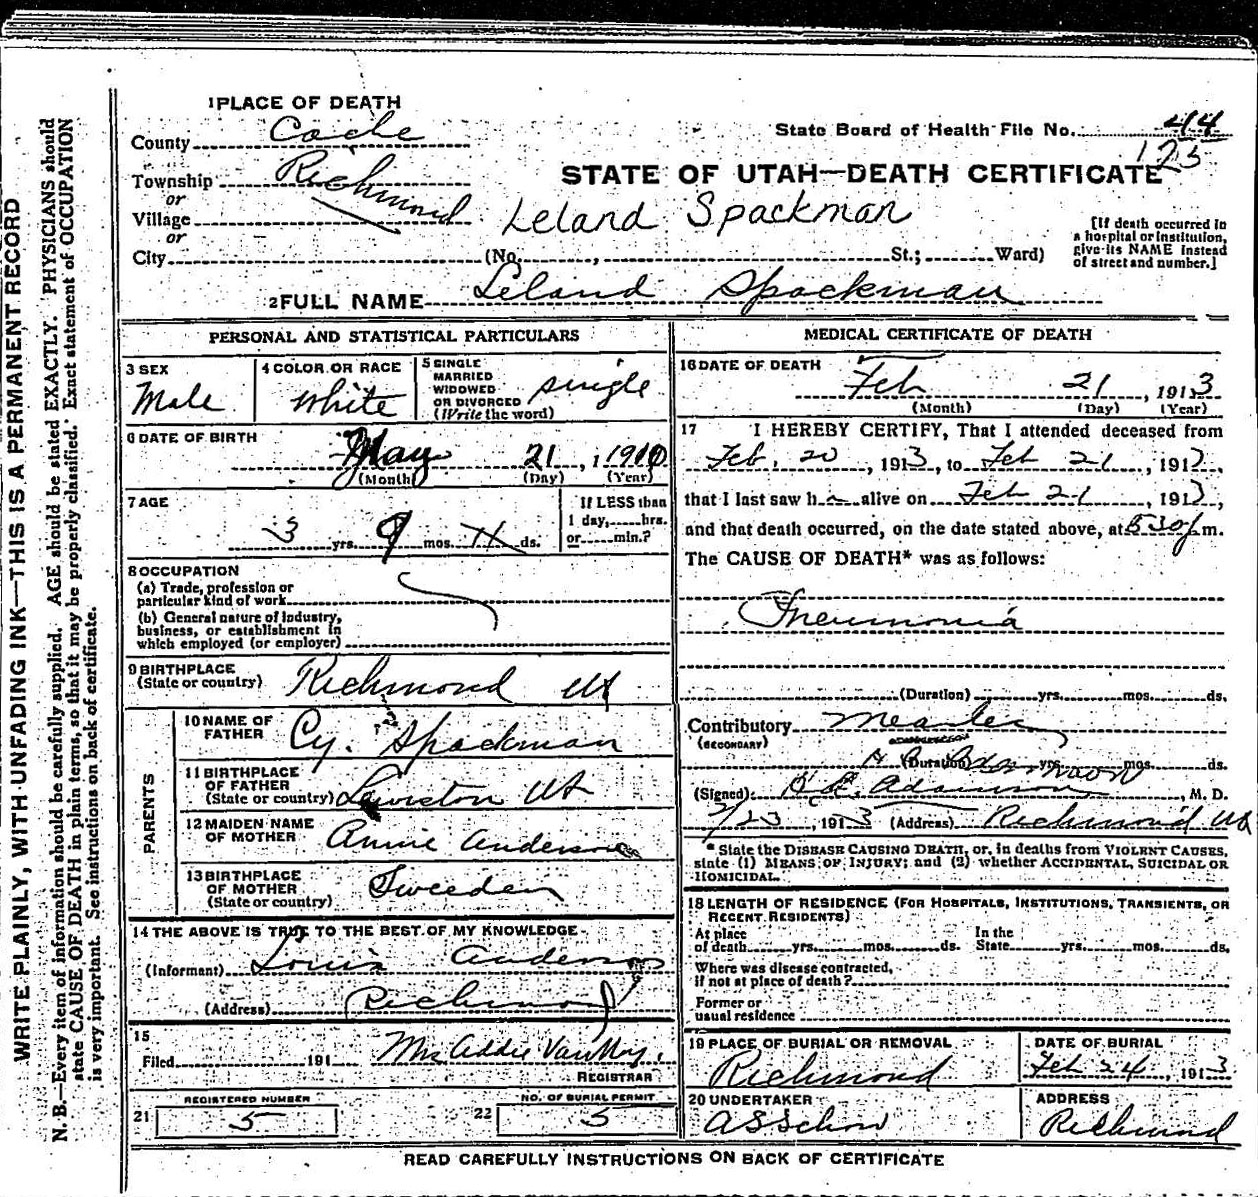 WRITE PLAINLY, WITH UNFADING INK—THIS IS A PERMANENT RECORD
N. B.—Every item of information should be carefully supplied. AGE should be stated EXACTLY. PHYSICIANS should
state CAUSE OF DEATH in plain terms, so that it may be properly classified. Exact statement of OCCUPATION
is very important. See instructions on back of certificate.
1 PLACE OF DEATH
County Cache
State Board of Health File No. 44
125
Township Richmond
or
Village
or
City
STATE OF UTAH—DEATH CERTIFICATE
Leland Spackman
(No. , St.; Ward)
[If death occurred in
a hospital or institution,
give its NAME instead
of street and number.]
2 FULL NAME Leland Spackman
PERSONAL AND STATISTICAL PARTICULARS
3 SEX
Male
4 COLOR OR RACE
White
5 SINGLE
MARRIED
WIDOWED
OR DIVORCED
(Write the word)
single
6 DATE OF BIRTH
May 21, 1910
(Month) (Day) (Year)
7 AGE
3 yrs. 9 mos. ds.
If LESS than
1 day, hrs.
or min.?
8 OCCUPATION
(a) Trade, profession or
particular kind of work
(b) General nature of industry,
business, or establishment in
which employed (or employer)
9 BIRTHPLACE
(State or country)
Richmond Ut
PARENTS
10 NAME OF
FATHER
Cy. Spackman
11 BIRTHPLACE
OF FATHER
(State or country)
Lewiston Ut
12 MAIDEN NAME
OF MOTHER
Annie Anderson
13 BIRTHPLACE
OF MOTHER
(State or country)
Sweeden
14 THE ABOVE IS TRUE TO THE BEST OF MY KNOWLEDGE
(Informant) Louis Anderson
(Address) Richmond
15
Filed 191 Mrs Addie Van
REGISTRAR
21
REGISTERED NUMBER
5
22
NO. OF BURIAL PERMIT
5
MEDICAL CERTIFICATE OF DEATH
16 DATE OF DEATH
Feb 21, 1913
(Month) (Day) (Year)
17 I HEREBY CERTIFY, That I attended deceased from
Feb. 20, 1913, to Feb 21, 1913,
that I last saw h alive on Feb 21, 1913,
and that death occurred, on the date stated above, at 530 p m.
The CAUSE OF DEATH* was as follows:
Pneumonia
(Duration) yrs. mos. ds.
Contributory Measles
(SECONDARY)
(Duration) yrs. mos. ds.
(Signed) Adamson, M. D.
2/23, 1913 (Address) Richmond Ut
* State the DISEASE CAUSING DEATH, or, in deaths from VIOLENT CAUSES,
state (1) MEANS OF INJURY; and (2) whether ACCIDENTAL, SUICIDAL OR
HOMICIDAL.
18 LENGTH OF RESIDENCE (FOR HOSPITALS, INSTITUTIONS, TRANSIENTS, OR
RECENT RESIDENTS)
At place
of death yrs. mos. ds.
In the
State yrs. mos. ds.
Where was disease contracted,
if not at place of death?
Former or
usual residence
19 PLACE OF BURIAL OR REMOVAL
Richmond
DATE OF BURIAL
Feb 24, 1913
20 UNDERTAKER
ADDRESS
Richmond
READ CAREFULLY INSTRUCTIONS ON BACK OF CERTIFICATE